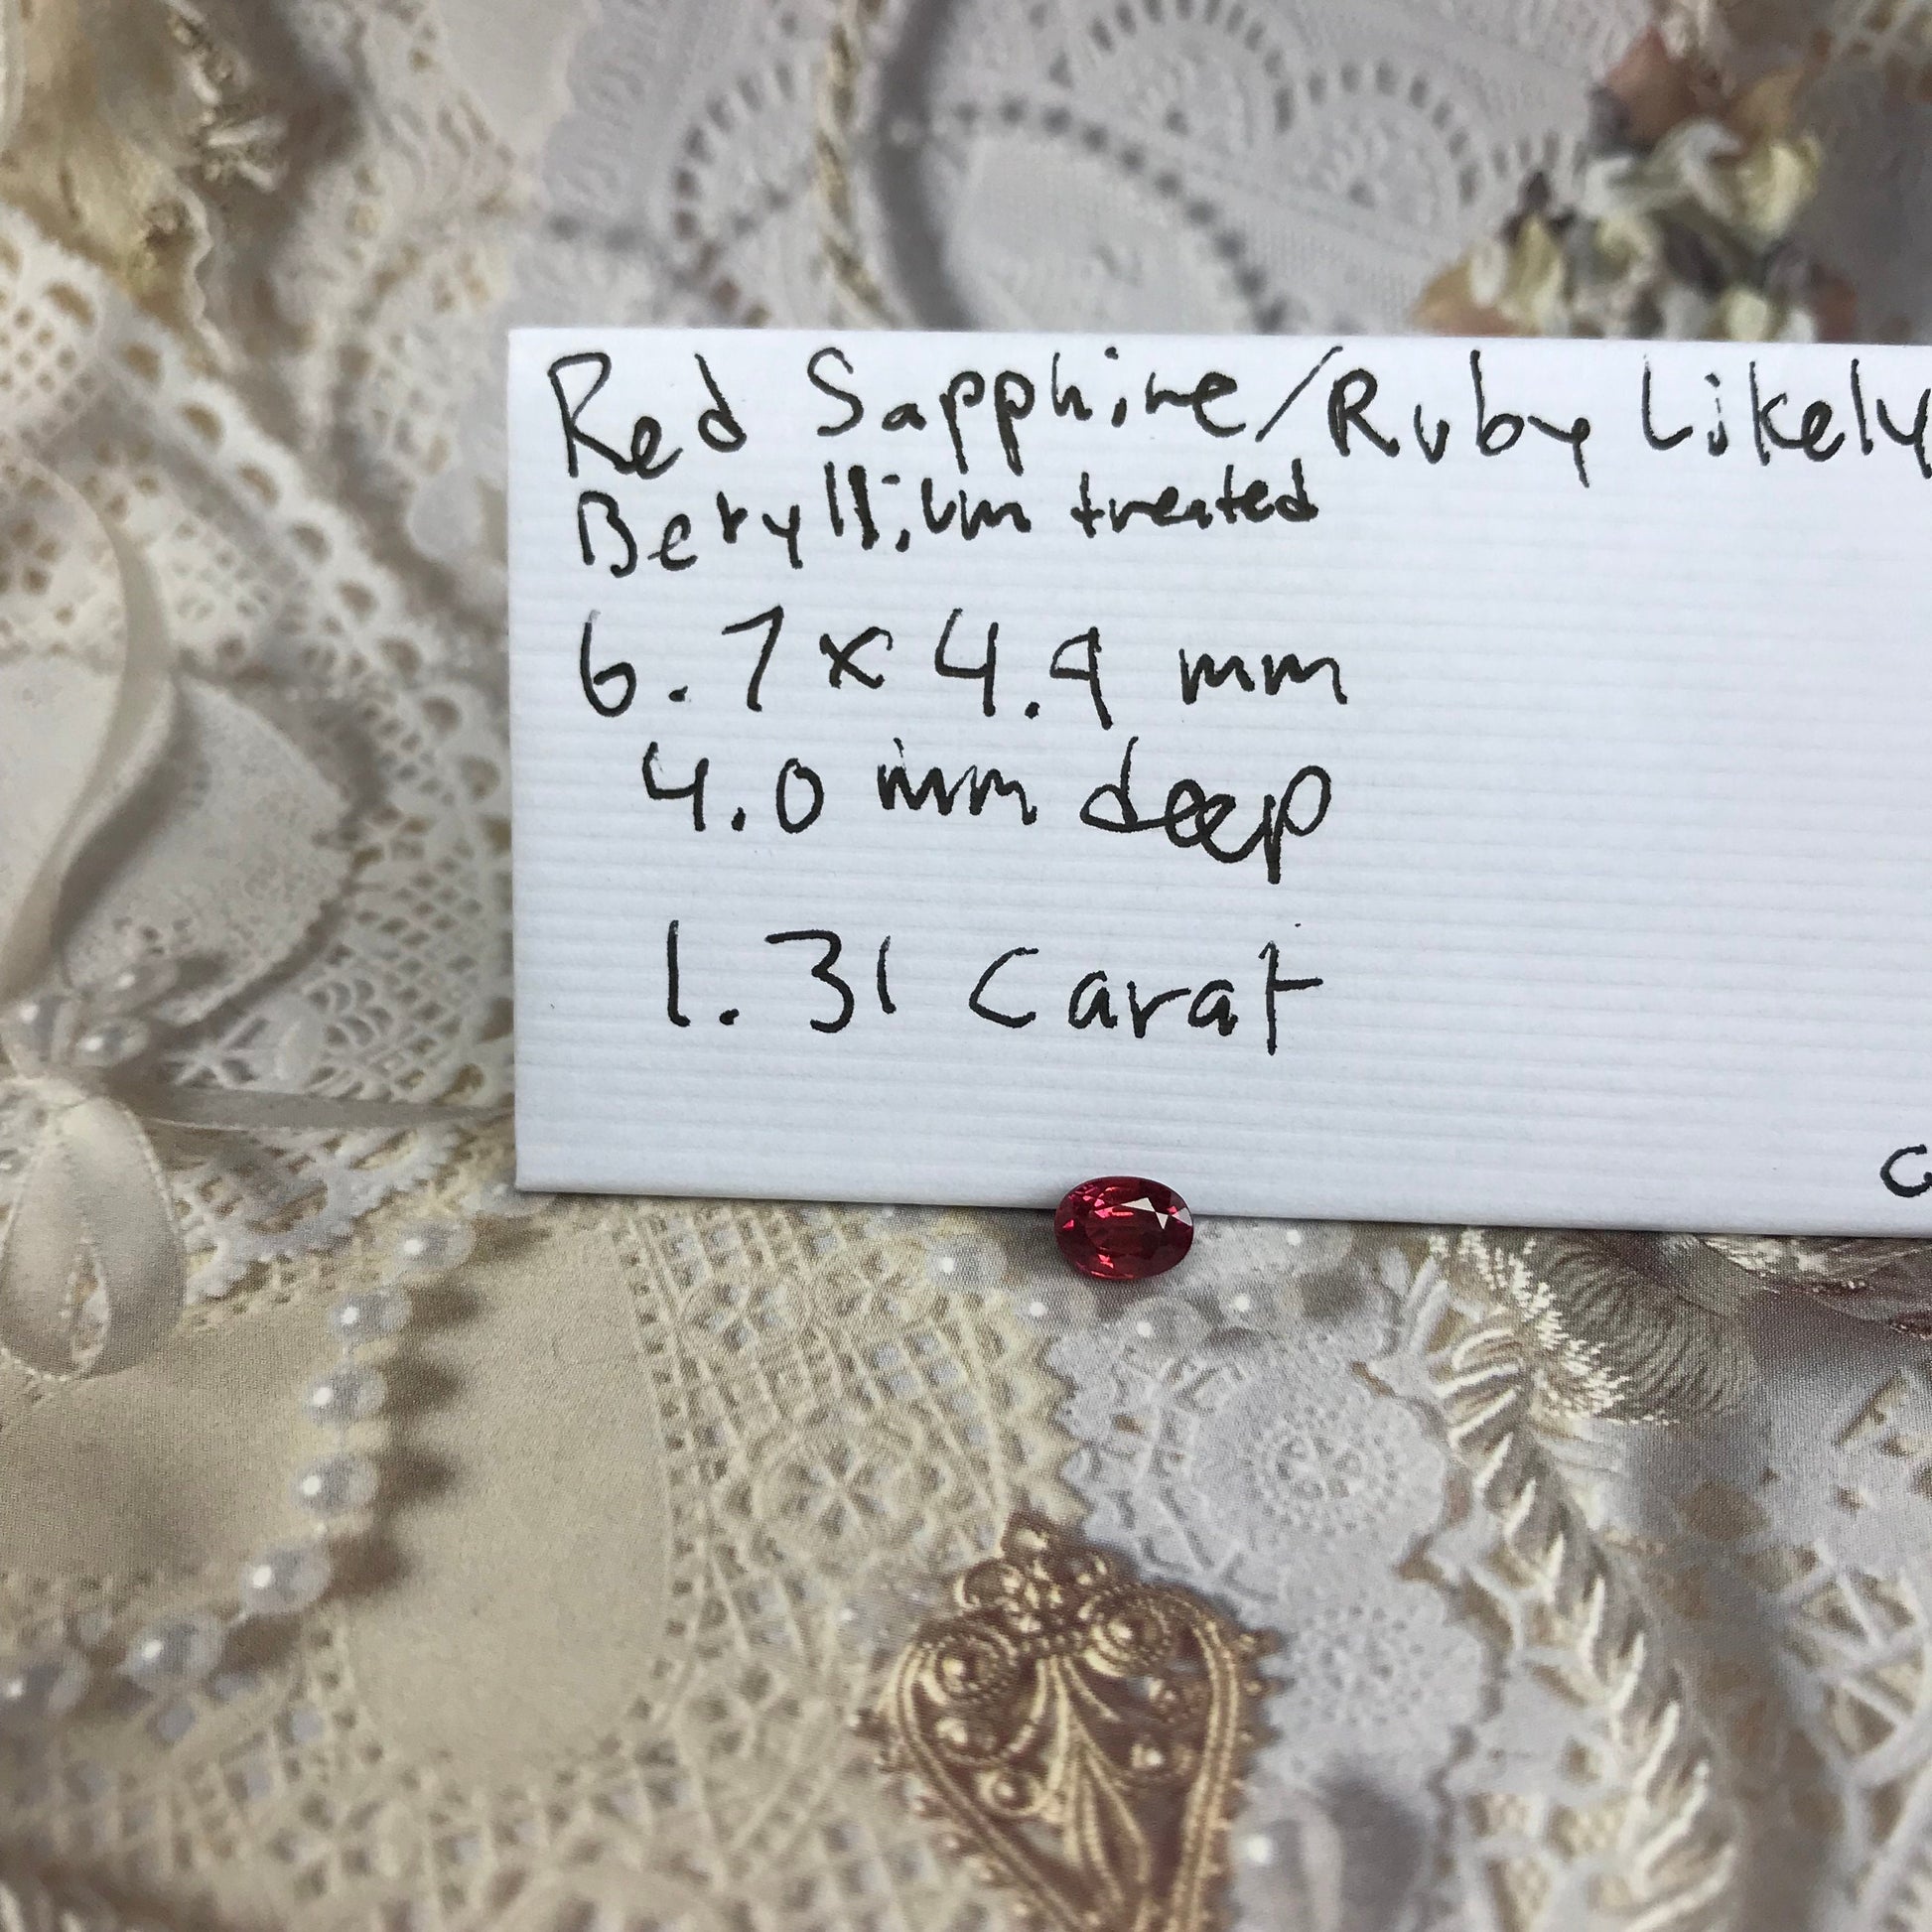 Red Sapphire/Ruby Likely
Beryllium treated
6.7 x 4.9 mm
4.0 mm deep
1.31 Carat